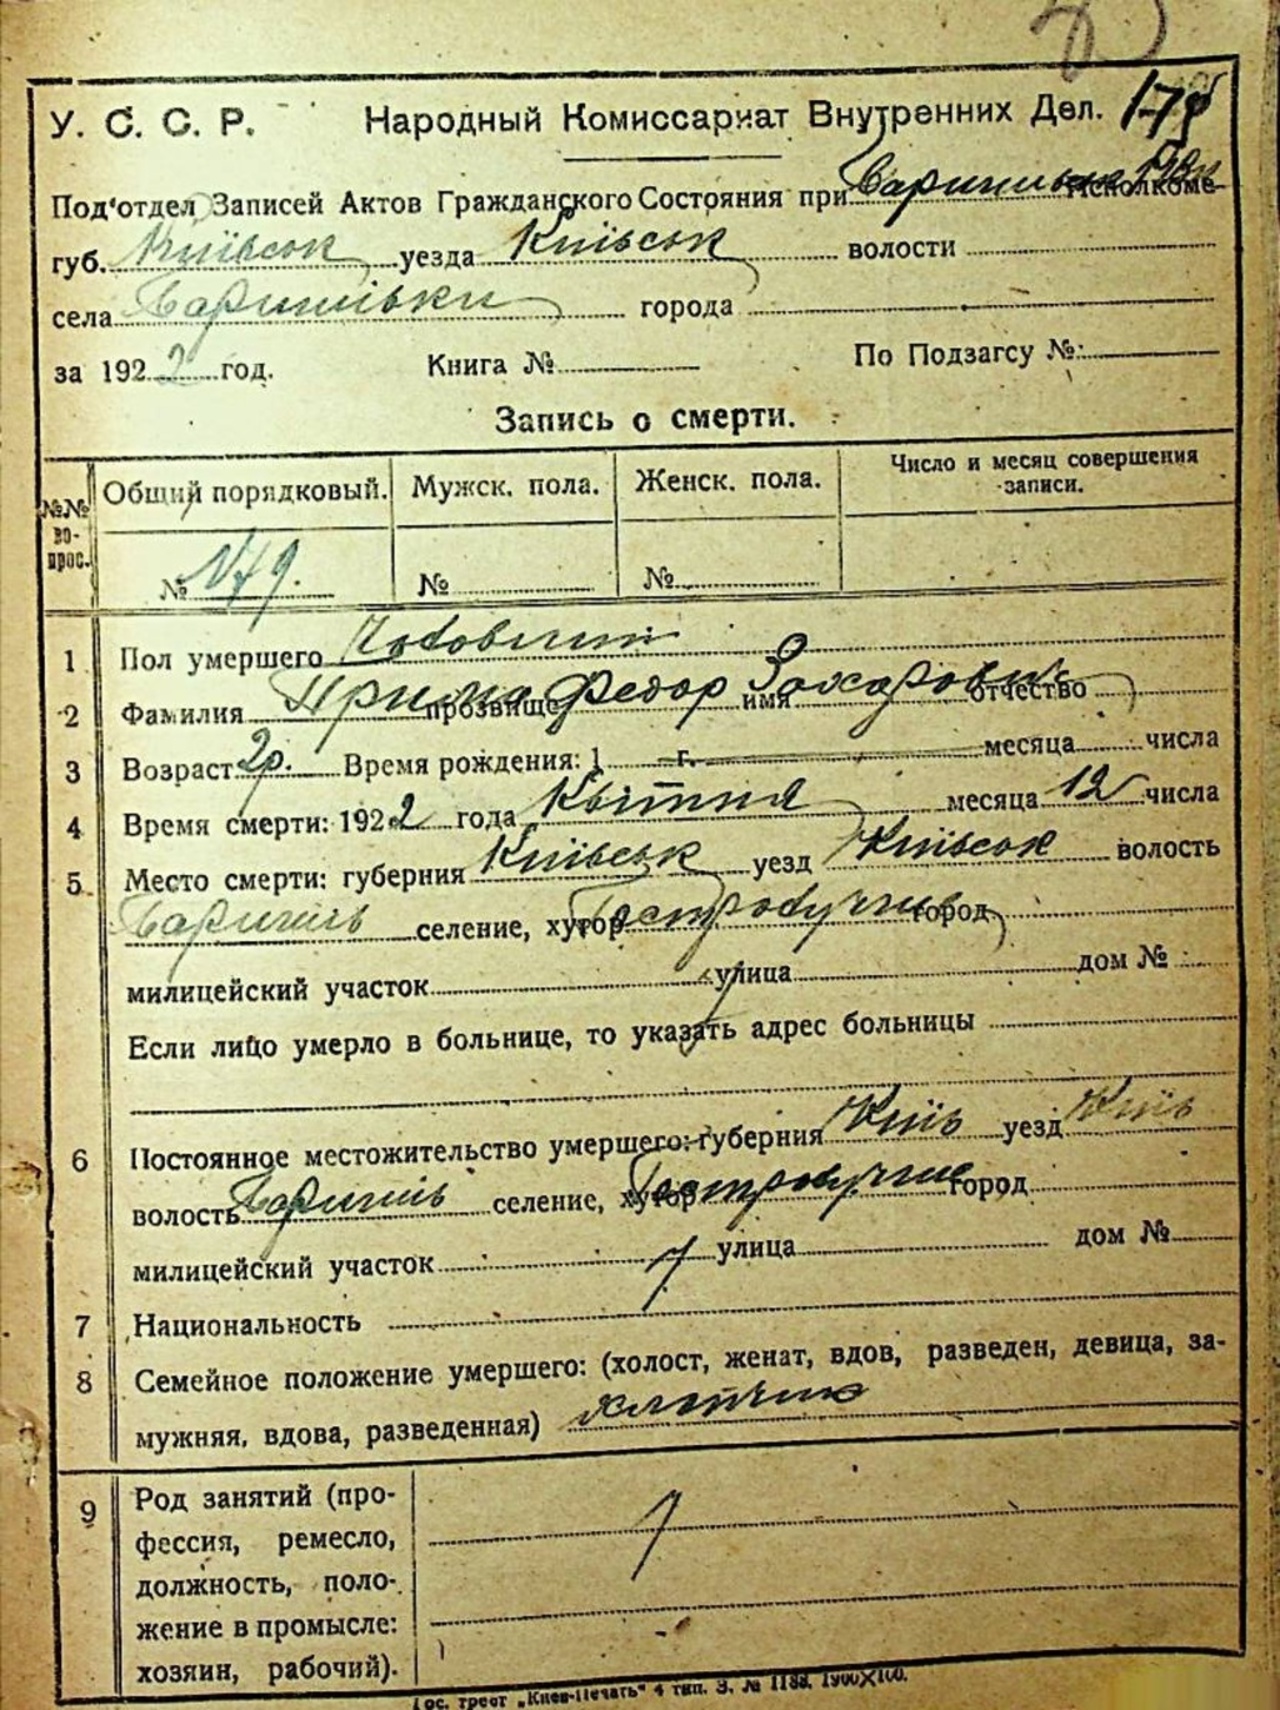 У. С. С. Р. Народный Комиссариат Внутренних Дел.
Под'отдел Записей Актов Гражданского Состояния при Исполкоме
губ. Київськ уезда Київськ волости
села Баришівки города
за 1922 год. Книга № По Подзагсу №:
Запись о смерти.
№№ вопрос. Общий порядковый. Мужск. пола. Женск. пола. Число и месяц совершения записи.
№ № №
1 Пол умершего Чоловичий
2 Фамилия Прима прозвище Федор имя Захарович отчество
3 Возраст 2р. Время рождения: 1 г. месяца числа
4 Время смерти: 1922 года Квітня месяца 12 числа
5 Место смерти: губерния Київськ уезд Київськ волость
Баришів селение, хутор город
милицейский участок улица дом №
Если лицо умерло в больнице, то указать адрес больницы
6 Постоянное местожительство умершего: губерния Київ уезд Київ
волость Баришів селение, хутор город
милицейский участок улица дом №
7 Национальность
8 Семейное положение умершего: (холост, женат, вдов, разведен, девица, за-
мужняя, вдова, разведенная) хлопчик
9 Род занятий (про-
фессия, ремесло,
должность, поло-
жение в промысле:
хозяин, рабочий).
Гос. трест „Киев-Печать" 4 тип. З. № 1188. 1900×100.